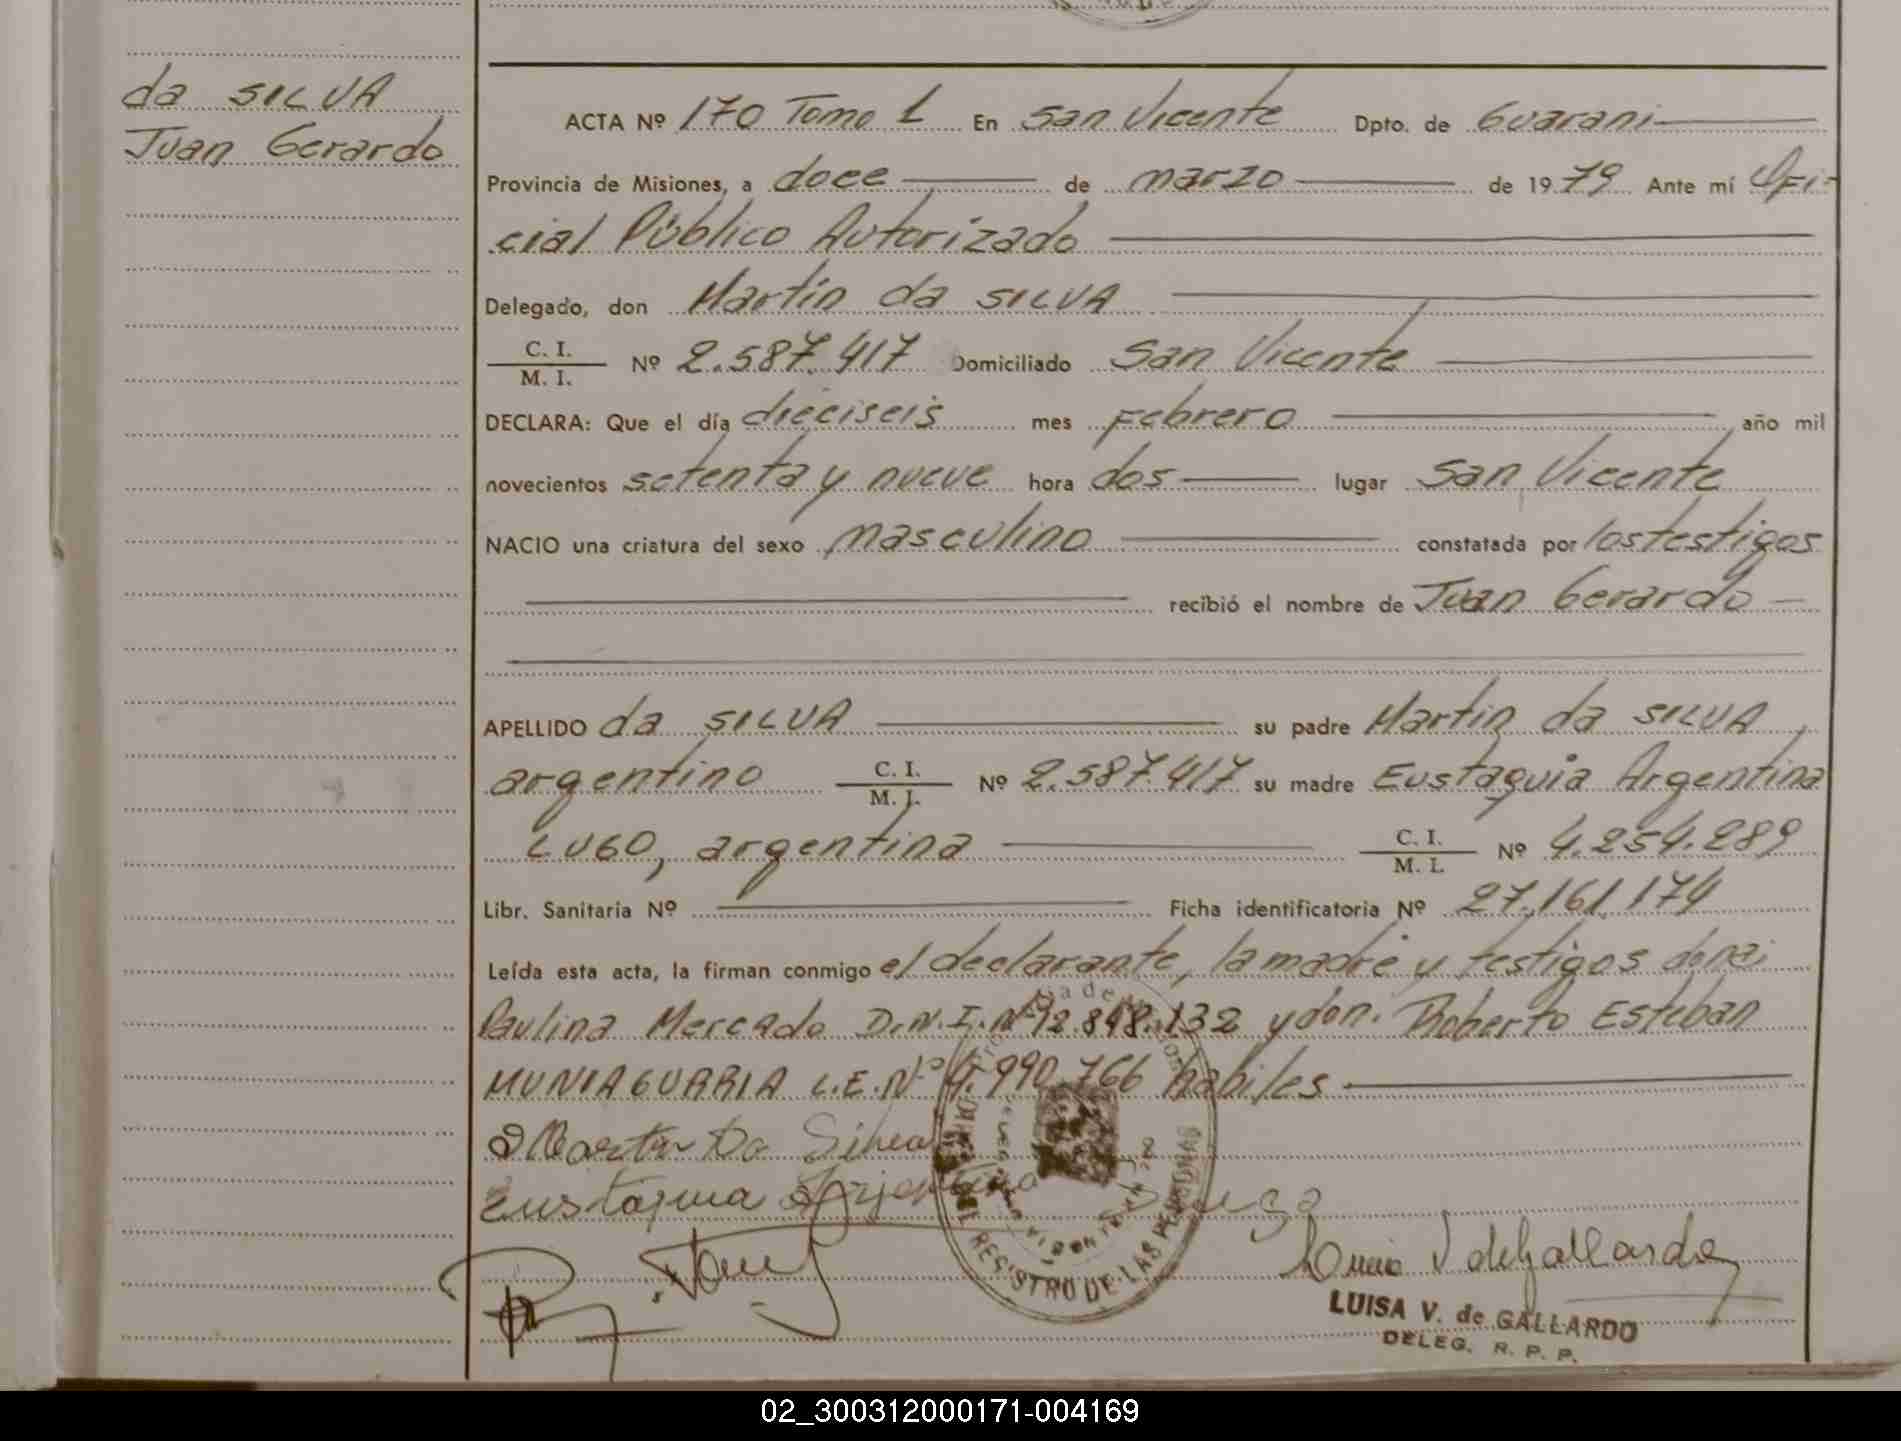 da SILVA
Juan Gerardo
ACTA Nº 170 Tomo 1 En San Vicente Dpto. de Guarani
Provincia de Misiones, a doce de marzo de 1979 Ante mí Ofi-
cial Público Autorizado
Delegado, don Martín da SILVA
C. I.
M. I. Nº 2.587.417 Domiciliado San Vicente
DECLARA: Que el día dieciseis mes Febrero año mil
novecientos setenta y nueve hora dos lugar San Vicente
NACIO una criatura del sexo masculino constatada por los testigos
recibió el nombre de Juan Gerardo
APELLIDO da SILVA su padre Martin da SILVA
argentino C. I.
M. I. Nº 2.587.417 su madre Eustaquia Argentina
LUGO, argentina C. I.
M. I. Nº 4.254.289
Libr. Sanitaria Nº Ficha identificatoria Nº 27.161.174
Leída esta acta, la firman conmigo el declarante, la madre y testigos doña
Paulina Mercado D.N.I. Nº 12.898.132 y don. Roberto Esteban
MUNIAGURRIA L.E. Nº 4.990.766 habiles
Martin Da Silva
Eustaquia Arjentina Lugo
REGISTRO DE LAS PERSONAS
LUISA V. de GALLARDO
DELEG. R. P. P.
02_300312000171-004169